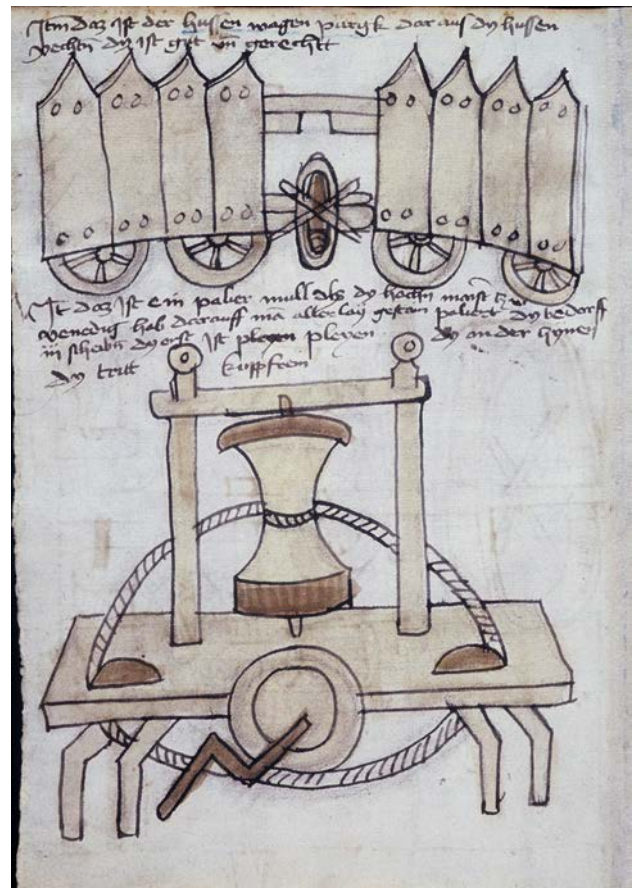 Itm daz Ist der hussen wagen purgk dar aus dy hussen
vechtn dz ist gut vn gerechtt
It daz Ist ein palier mull als dy hochn maist zw
venedig hab darauff mā allerlay gestan paliert dy bedorff
iij scheibn dy erst Ist pleyen pleyen dy ander zynen
dy tritt kuppfrein